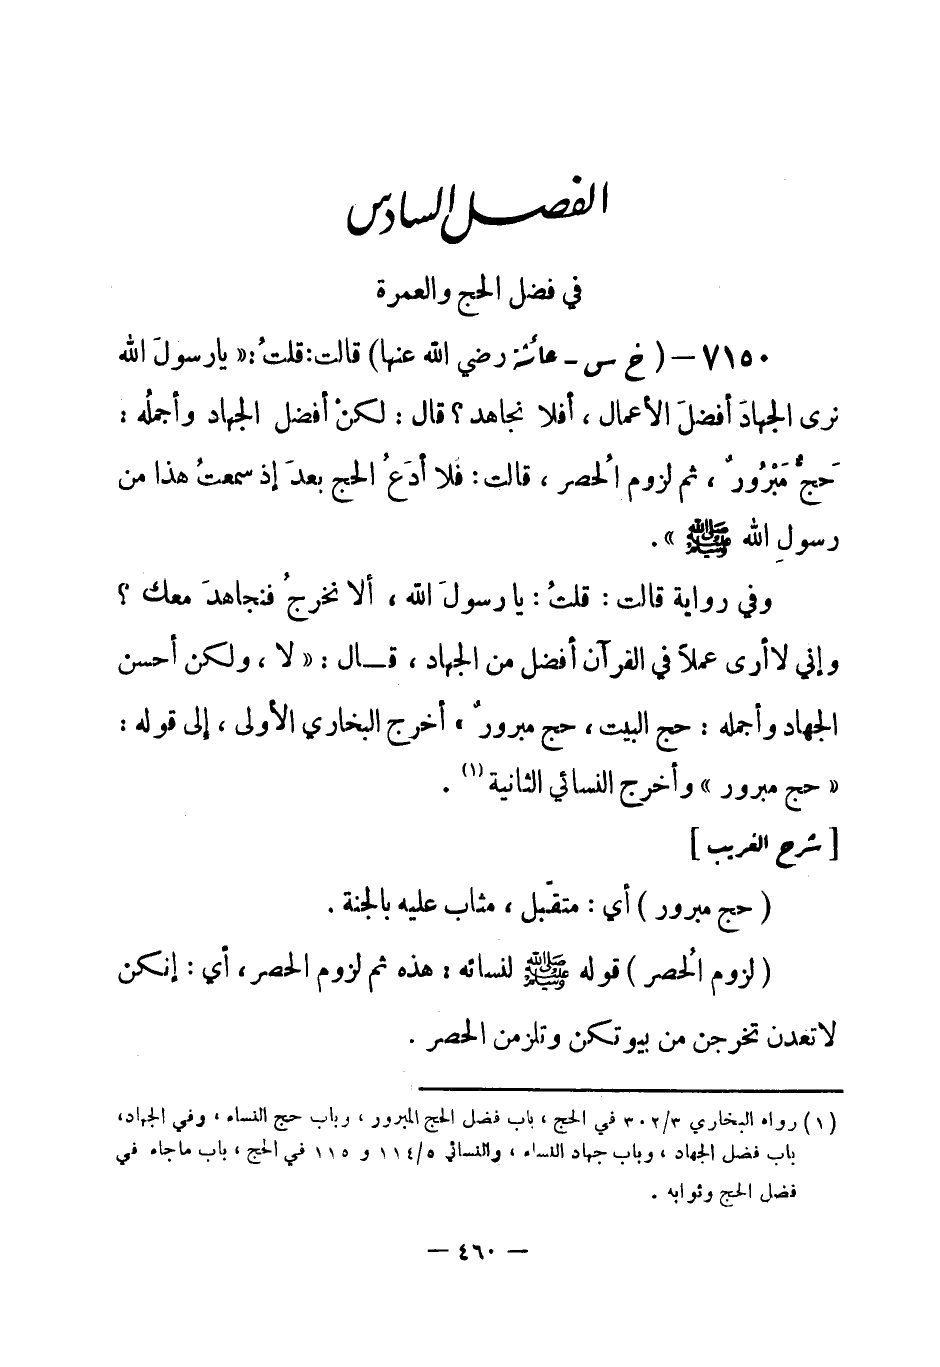 الفصل السادس
في فضل الحج والعمرة
٧١٥٠ – ( خ س - عائشة رضي الله عنها) قالت: قلتُ: « يارسولَ الله
نرى الجهادَ أفضلَ الأعمال ، أفلا نجاهد ؟ قال : لكنْ أفضل الجهاد وأجملُه :
حَجٌّ مَبْرُورٌ ، ثم لزوم الحُصر ، قالت : فلا أدَعُ الحج بعدَ إذ سمعتُ هذا من
رسولِ الله ﷺ » .
وفي رواية قالت : قلتُ : يا رسولَ الله ، ألا نخرجُ فنجاهدَ معك ؟
وإني لاأرى عملاً في القرآن أفضل من الجهاد ، قـال : « لا ، ولكن أحسن
الجهاد وأجمله : حج البيت ، حج مبرورٌ » أخرج البخاري الأولى ، إلى قوله :
« حج مبرور » وأخرج النسائي الثانية (١) .
[ شرح الغريب ]
( حج مبرور ) أي : متقبّل ، مثاب عليه بالجنة .
( لزوم الحُصر ) قوله ﷺ لنسائه : هذه ثم لزوم الحصر ، أي : إنكن
لاتعدن تخرجن من بيوتكن وتلزمن الحصر .
(١) رواه البخاري ٣٠٢/٣ في الحج ، باب فضل الحج المبرور ، وباب حج النساء ، وفي الجهاد،
باب فضل الجهاد ، وباب جهاد النساء ، والنسائي ١١٤/٥ و ١١٥ في الحج ، باب ماجاء في
فضل الحج وثوابه .
— ٤٦٠ —